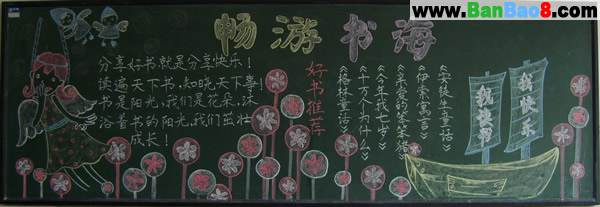 www.BanBao8.com
畅游书海
分享好书就是分享快乐！
读遍天下书，知晓天下事！
书是阳光，我们是花朵，沐
浴着书的阳光，我们茁壮
成长！
好书推荐
《安徒生童话》
《伊索寓言》
《亲爱的笨笨猪》
《今年我七岁》
《十万个为什么》
《格林童话》
我读书
我快乐